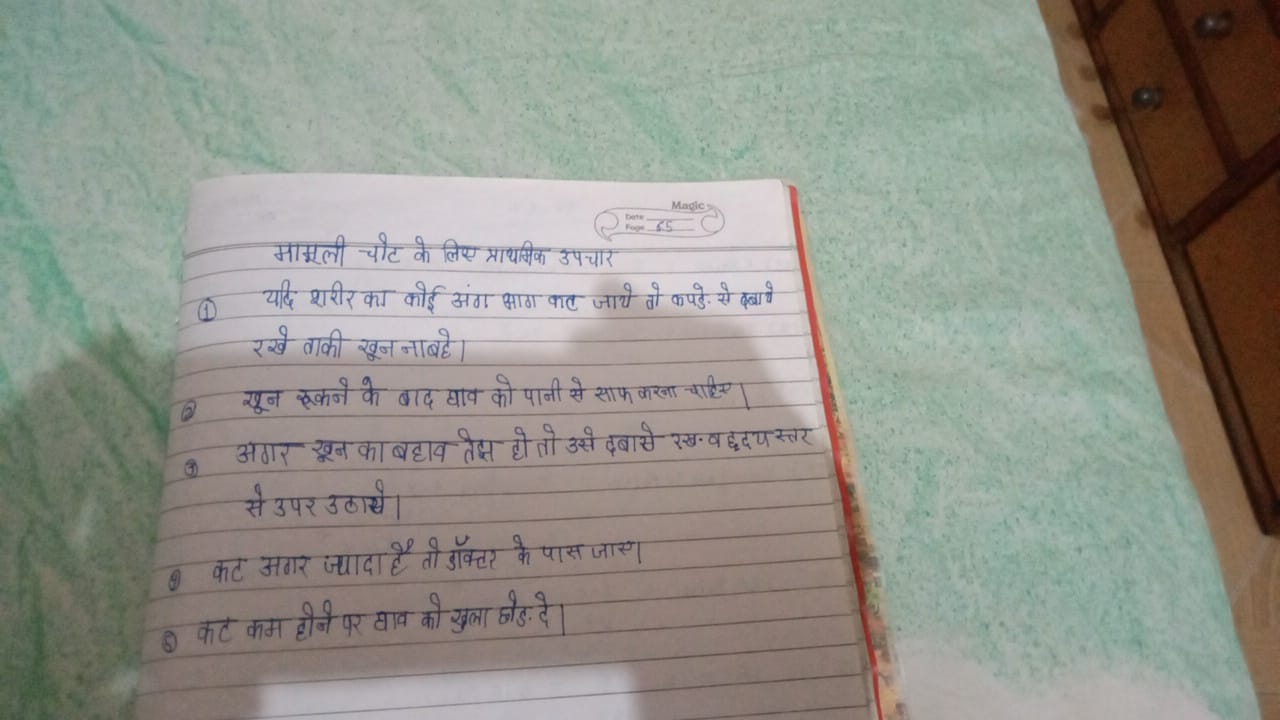 Magic
Date
Page 65
मामूली चोट के लिए प्राथमिक उपचार
① यदि शरीर का कोई अंग भाग कट जाये तो कपड़े से दबाये
रखे ताकी खून ना बहे।
② खून रूकने के बाद घाव को पानी से साफ करना चाहिए।
③ अगर खून का बहाव तेज हो तो उसे दबासे रख व हृदय स्तर
से उपर उठाये।
④ कट अगर ज्यादा है तो डॉक्टर के पास जाए।
⑤ कट कम होने पर घाव को खुला छोड़ दे।